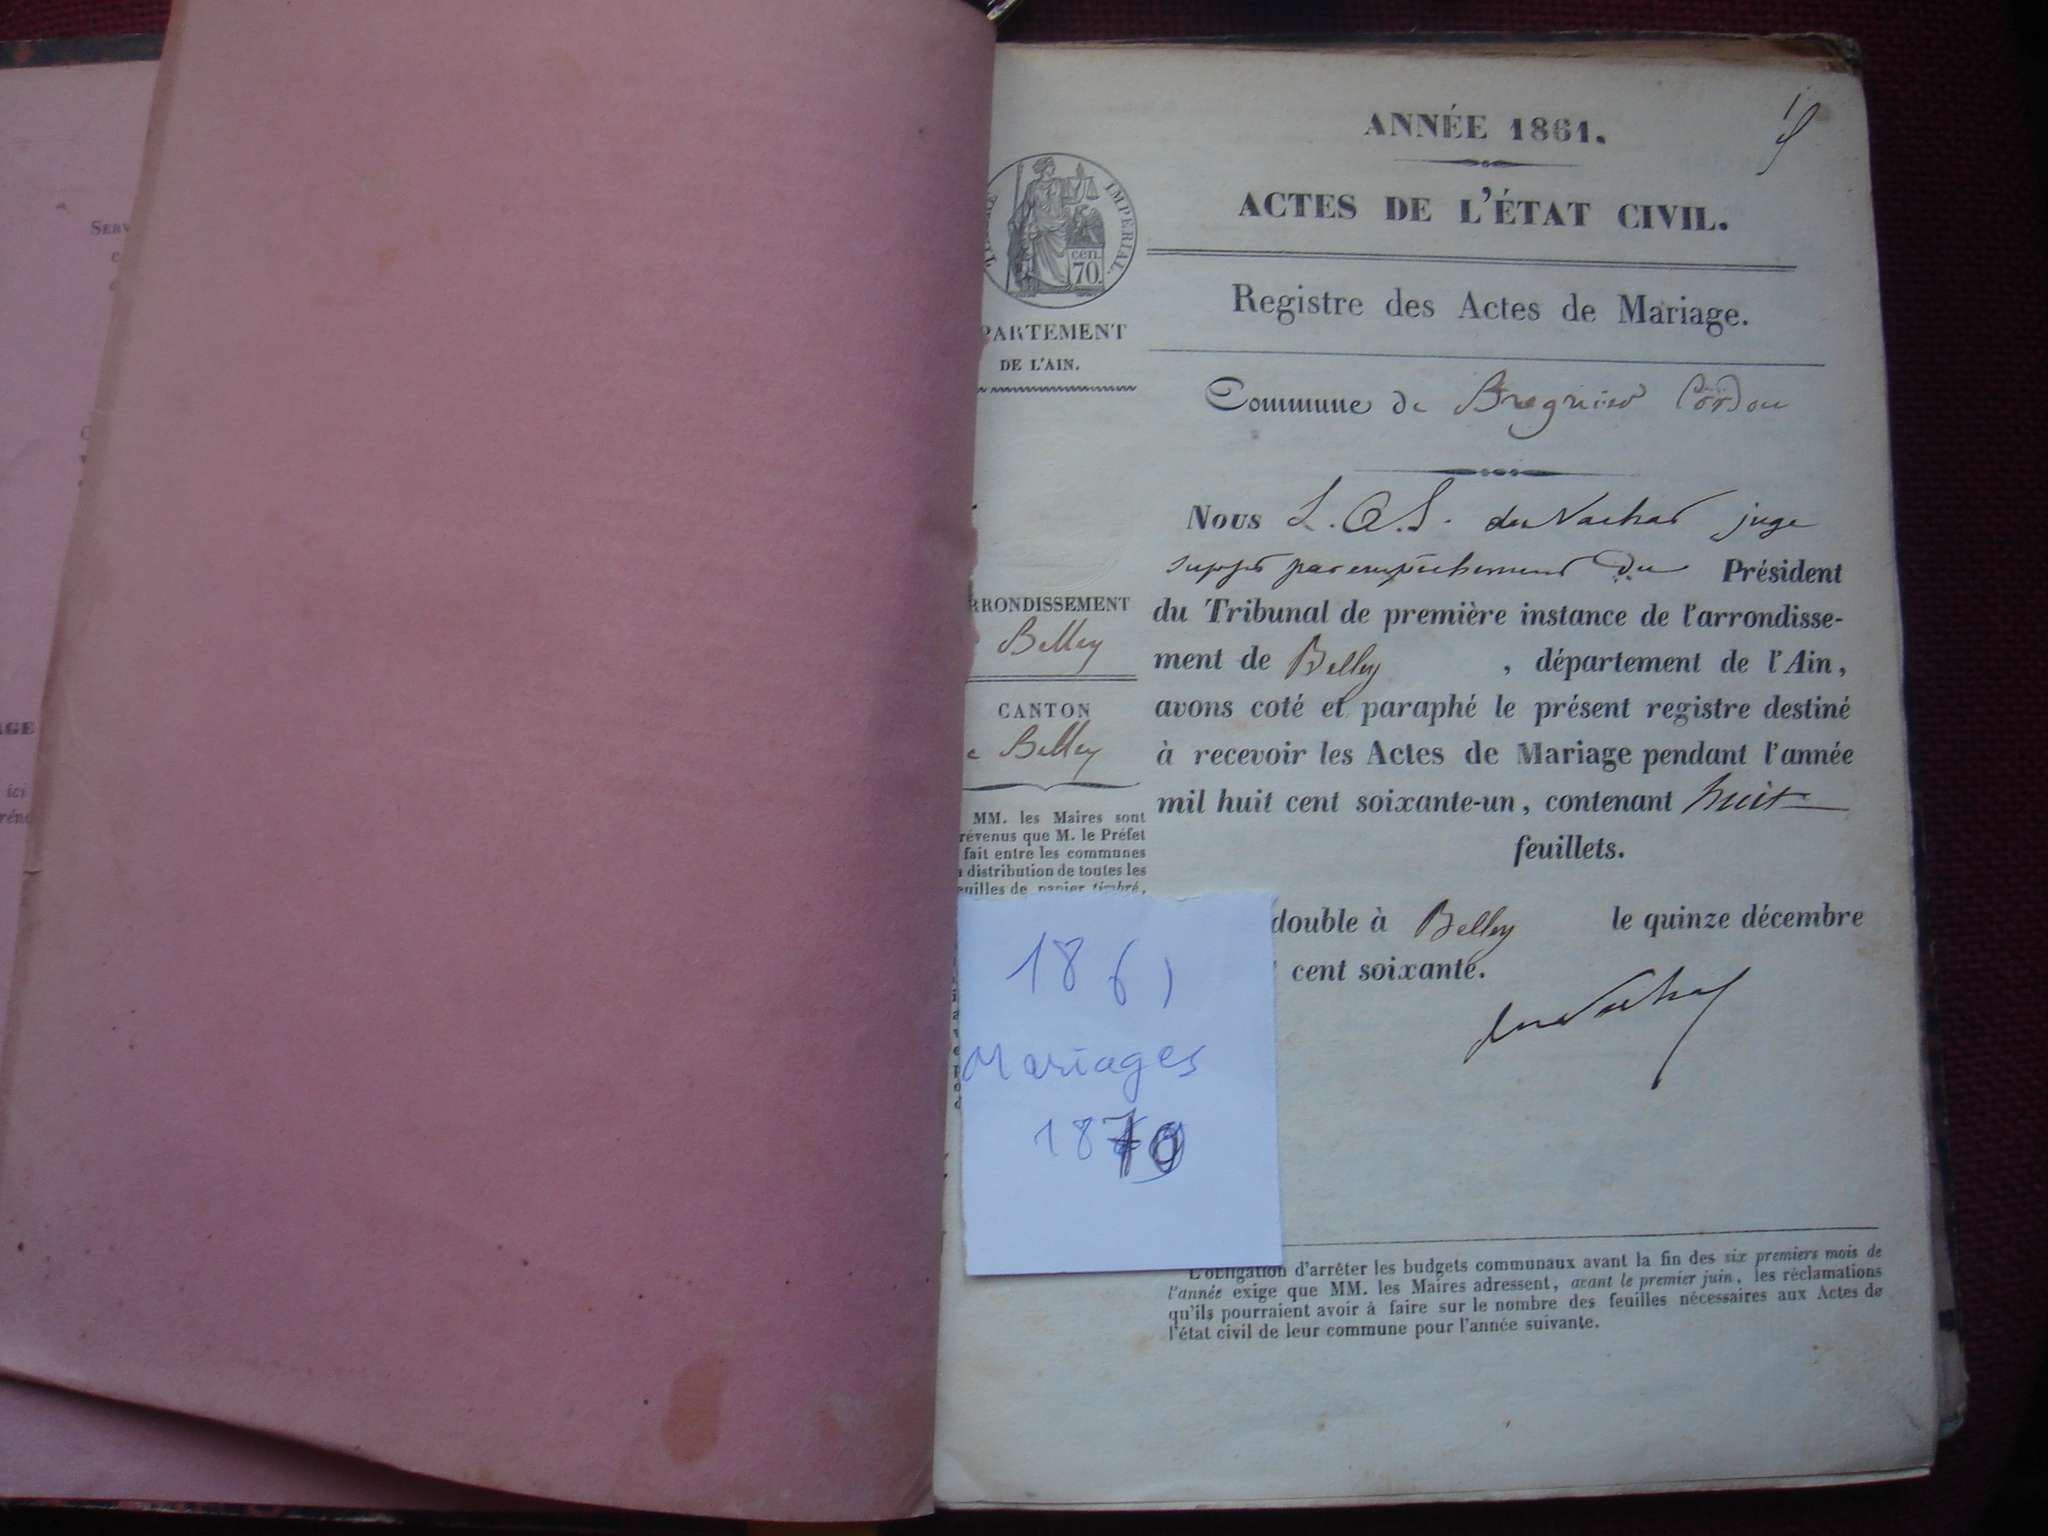 ANNÉE 1861.
ACTES DE L'ÉTAT CIVIL.
Registre des Actes de Mariage.
Commune de Bregnier Cordon
Nous L. A. S. juge
supp par empêchement du Président
du Tribunal de première instance de l'arrondisse-
ment de Belley, département de l'Ain,
avons coté et paraphé le présent registre destiné
à recevoir les Actes de Mariage pendant l'année
mil huit cent soixante-un, contenant huit
feuillets.
double à Belley le quinze décembre
cent soixante.
L'obligation d'arrêter les budgets communaux avant la fin des six premiers mois de
l'année exige que MM. les Maires adressent, avant le premier juin, les réclamations
qu'ils pourraient avoir à faire sur le nombre des feuilles nécessaires aux Actes de
l'état civil de leur commune pour l'année suivante.
TIMBRE IMPÉRIAL.
cen.
70.
PARTEMENT
DE L'AIN.
RRONDISSEMENT
Belley
CANTON
e Belley
MM. les Maires sont
révenus que M. le Préfet
fait entre les communes
distribution de toutes les
euilles de papier timbré,
1861
Mariages
1870
SERV
AGE
ici